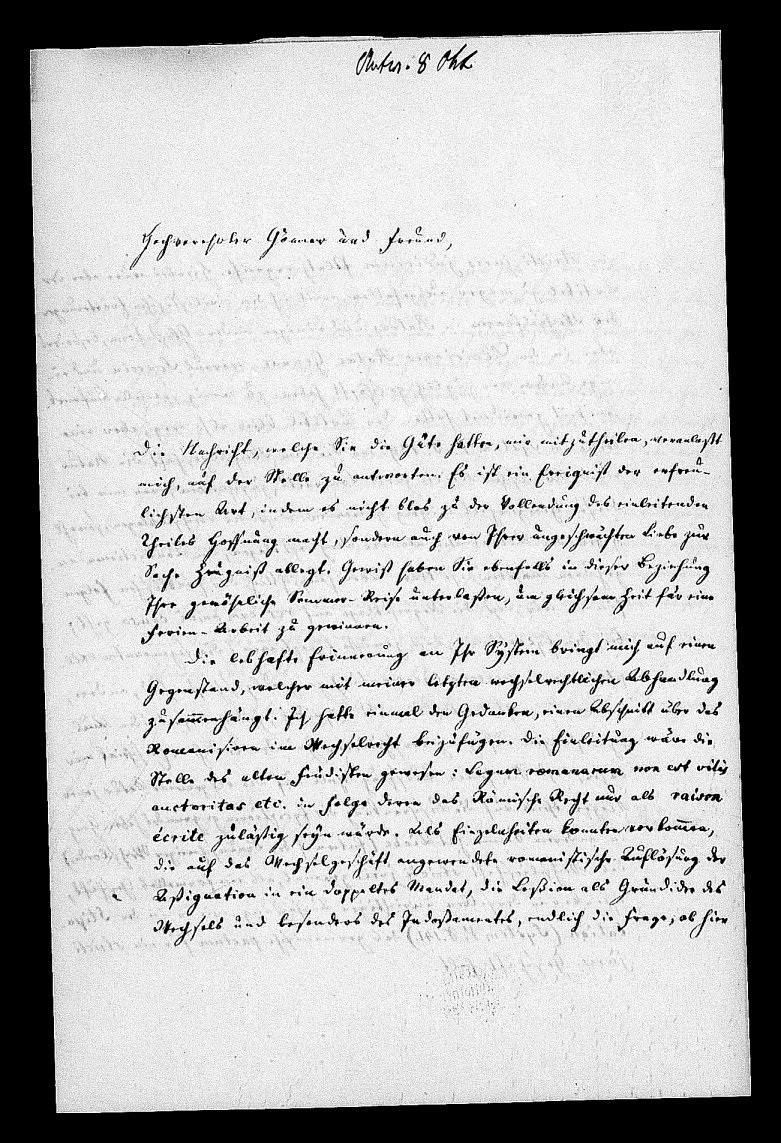 Antw. 8 Okt
Hochverehrter Gönner und Freund,
Die Nachricht, welche Sie die Güte hatten, mir mitzutheilen, veranlaßt
mich, auf der Stelle zu antworten. Es ist ein Ereigniß der erfreu-
lichsten Art, indem es nicht blos zu der Vollendung des einleitenden
Theiles Hoffnung macht, sondern auch von Ihrer ungeschwächten Liebe zur
Sache Zeugniß ablegt. Gewiß haben Sie ebenfalls in dieser Beziehung
Ihre gewöhnliche Sommer-Reise unterlassen, um gleichsam Zeit für eine
Ferien-Arbeit zu gewinnen.
Die lebhafte Erinnerung an Ihr System bringt mich auf einen
Gegenstand, welcher mit meiner letzten wechselrechtlichen Abhandlung
zusammenhängt. Ich hatte einmal den Gedanken, einen Abschnitt über das
Romanisiren im Wechselrecht beizufügen. Die Einleitung wäre die
Stelle des alten Feudisten gewesen: Legum romanarum non est vilis
auctoritas etc. in Folge deren das Römische Recht nur als raison
écrite zuläßig seyn würde. Als Einzelnheiten konnten vorkommen,
die auf das Wechselgeschäft angewendete romanistische Auflösung der
Assignation in ein doppeltes Mandat, die Cession als Grundidee des
Wechsels und besonders des Indossamentes, endlich die Frage, ob hier